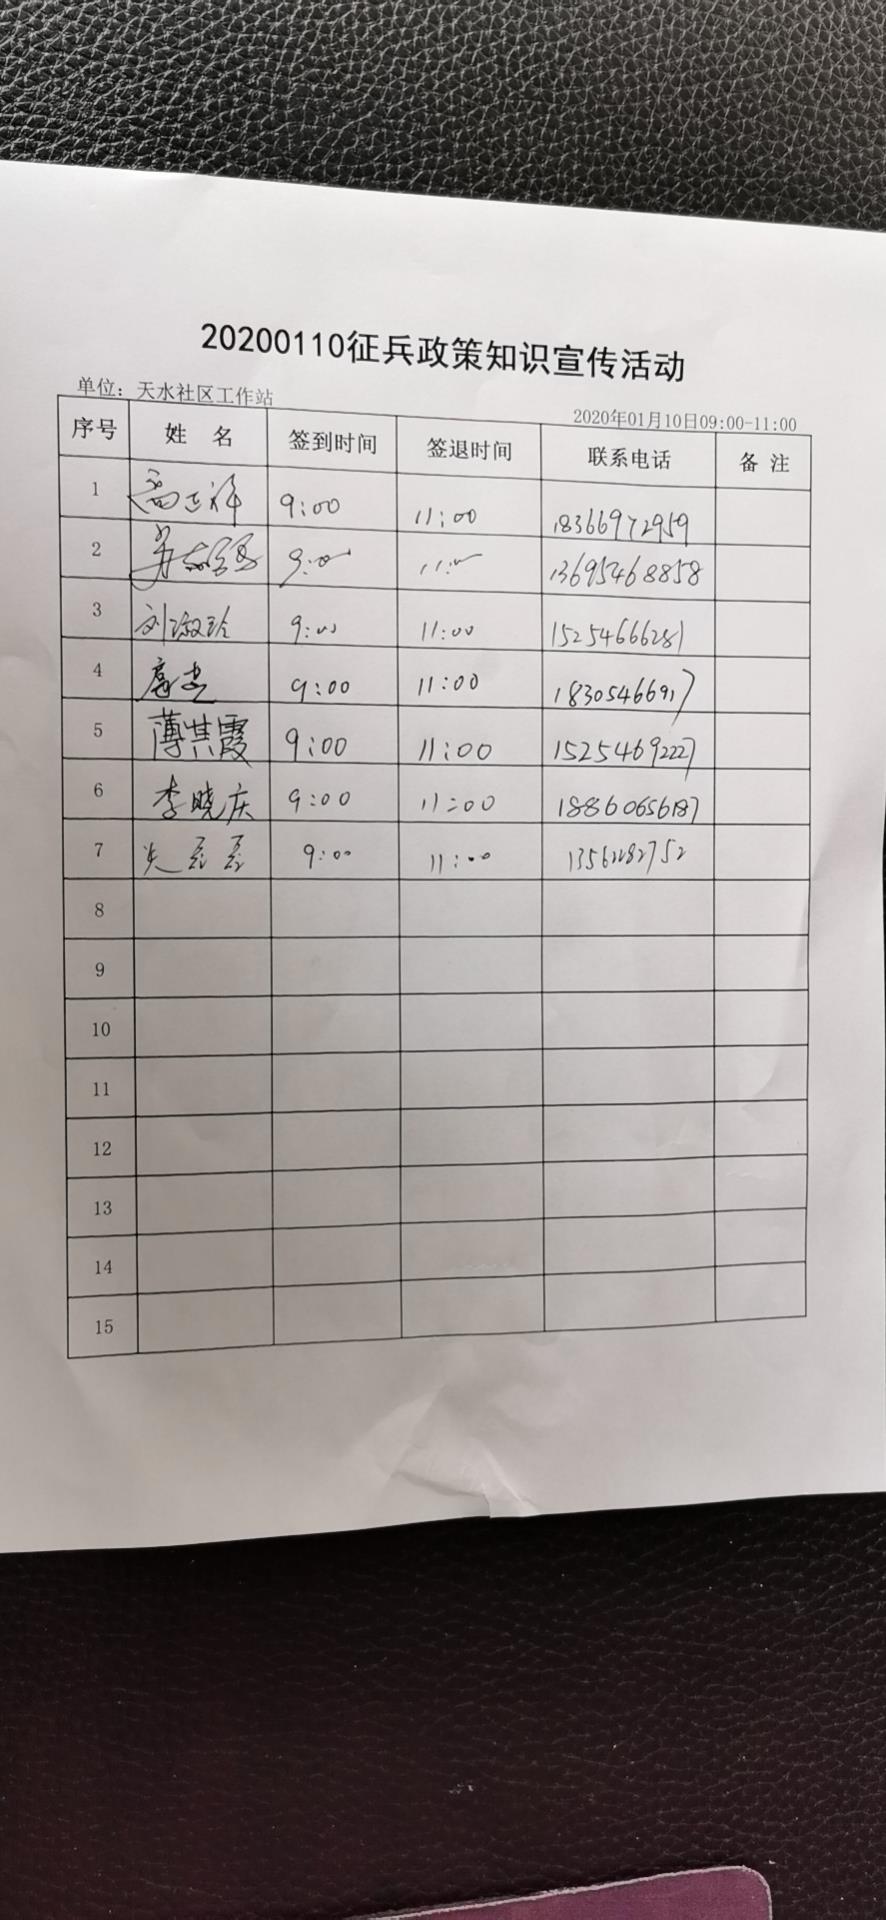 20200110征兵政策知识宣传活动
单位：天水社区工作站
2020年01月10日09:00-11:00
序号 姓 名 签到时间 签退时间 联系电话 备 注
1 9:00 11:00 18366972959
2 9:00 11:00 13695468858
3 刘淑玲 9:00 11:00 15254666281
4 9:00 11:00 18305466917
5 薄其霞 9:00 11:00 15254692227
6 李晓庆 9:00 11:00 18860656187
7 9:00 11:00
8
9
10
11
12
13
14
15